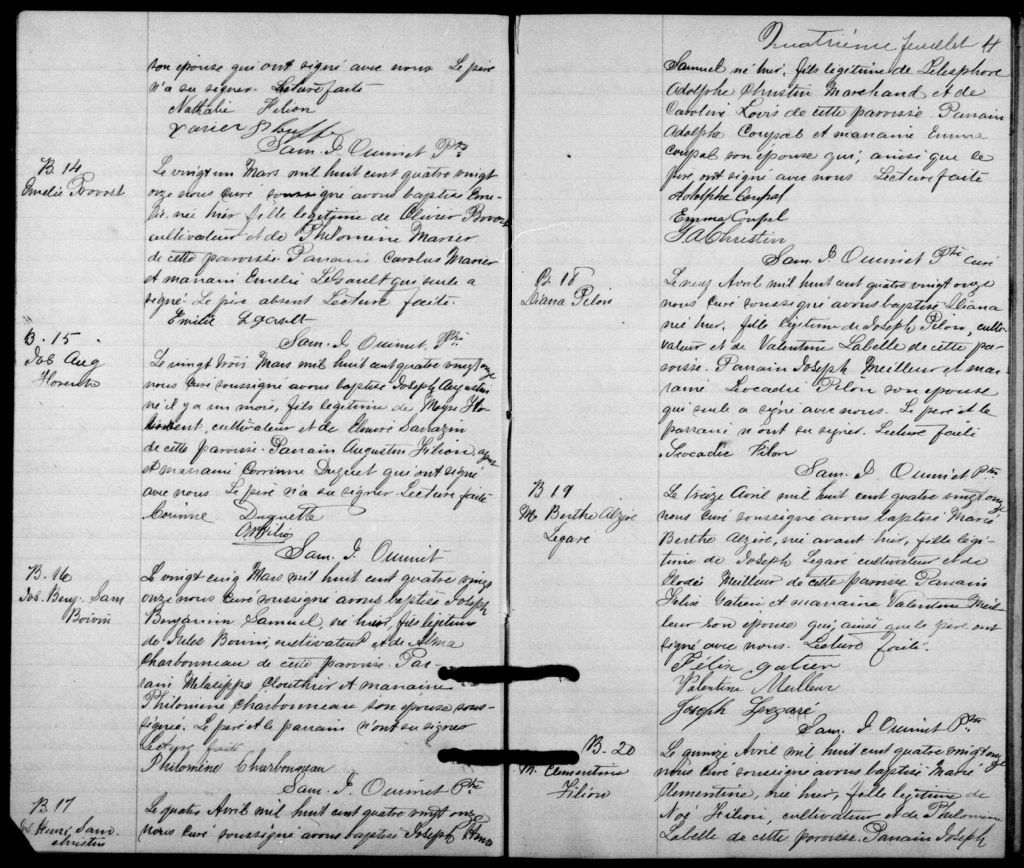 son épouse qui ont signé avec nous Le père
n'a su signer. Lecture faite
Nathalie Filion
Sam. J. Ouimet Ptre
B. 14
Emelie Provost
Le vingt un Mars mil huit cent quatre vingt
onze nous curé soussigné avons baptisé Eme-
lie, née hier, fille legitime de Olivier Provost
cultivateur et de Philomène Marier
de cette paroisse Parrain Carolus Marier
et marraine Emelie LeGault qui seule a
signé. Le père absent Lecture faite
Emilie Legault
Sam. J. Ouimet, Ptre
B. 15
Jos Aug
Le vingt trois Mars mil huit cent quatre vingt onze
nous curé soussigné avons baptisé Joseph Augustin
né il y a un mois, fils legitime de Moyse Flo-
cultivateur et de Sarrazin
de cette paroisse. Parrain Augustin Filion
et marraine Corinne Duquet qui ont signé
avec nous Le père n'a su signer Lecture faite
Corinne Duquette
Sam. J. Ouimet
B. 16
Jos. Benj. Sam
Boivin
Le vingt cinq Mars mil huit cent quatre vingt
onze nous curé soussigné avons baptisé Joseph
Benjamin Samuel, né hier, fils legitime
de Jules Boivin, cultivateur et de Alma
Charbonneau de cette paroisse. Par-
rain Melasippe Clouthier et marraine
Philomène Charbonneau son epouse sous-
signée. Le père et le parrain n'ont su signer
Lecture faite
Philomène Charbonneau
Sam. J. Ouimet Ptre
B. 17
Jos Henri Sam.
christin
Le quatre Avril mil huit cent quatre vingt onze
nous curé soussigné avons baptisé Joseph Henri
Quatrième feuillet 4
Samuel né hier, fils legitime de Telesphore
Adolphe Christin Marchand et de
Caroline Lovis de cette paroisse Parrain
Adolphe Coupal et marraine Emma
Coupal son épouse qui, ainsi que le
père ont signé avec nous Lecture faite
Adolphe Coupal
Emma Coupal
T A Christin
Sam. J. Ouimet Ptre curé
B. 18
Diana Pilon
Le neuf Avril mil huit cent quatre vingt onze
nous curé soussigné avons baptisé Diana
née hier, fille légitime de Joseph Pilon, culti-
vateur et de Valentine Labelle de cette pa-
roisse. Parrain Joseph Meilleur et mar-
raine Leocadie Pilon son epouse
qui seule a signé avec nous. Le père et le
parrain n'ont su signer. Lecture faite
Leocadie Pilon
Sam. J. Ouimet Ptre
B 19
M. Berthe Alzire
Legare
Le treize Avril mil huit cent quatre vingt onze
nous curé soussigné avons baptisé Marie
Berthe Alzire, née avant hier, fille légi-
time de Joseph Legaré cultivateur et de
Elodie Meilleur de cette paroisse Parrain
Felix Gatien et marraine Valentine Meil-
leur son epouse qui, ainsi que le père ont
signé avec nous. Lecture faite.
Félix gatien
Valentine Meilleur
Joseph Legaré
Sam. J. Ouimet Ptre
B. 20
M. Clementine
Filion
Le quinze Avril mil huit cent quatre vingt onze
nous curé soussigné avons baptisé Marie
Clementine, née hier, fille legitime de
Noé Filion, cultivateur et de Philomène
Labelle de cette paroisse. Parrain Joseph